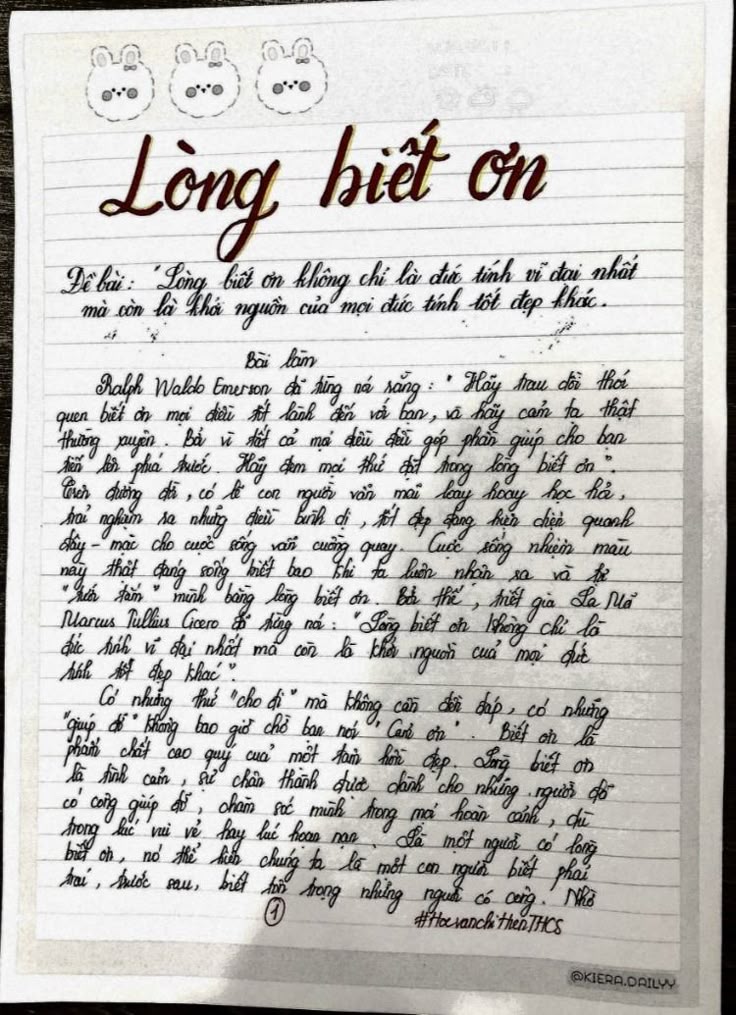 Lòng biết ơn
Đề bài: "Lòng biết ơn không chỉ là đức tính vĩ đại nhất
mà còn là khởi nguồn của mọi đức tính tốt đẹp khác.
Bài làm
Ralph Waldo Emerson đã từng nói rằng: "Hãy trau dồi thói
quen biết ơn mọi điều tốt lành đến với bạn, và hãy cảm tạ thật
thường xuyên. Bởi vì tất cả mọi điều đều góp phần giúp cho bạn
tiến lên phía trước. Hãy đem mọi thứ đặt trong lòng biết ơn".
đường đời, có lẽ con người vẫn mải loay hoay học hỏi,
trải nghiệm ra những điều bình dị, tốt đẹp đang hiện diện quanh
đây - mặc cho cuộc sống vẫn cuồng quay. Cuộc sống nhiệm màu
này thật đáng sống biết bao khi ta luôn nhận ra và tự
"tưới tắm" mình bằng lòng biết ơn. Bởi thế, triết gia La Mã
Marcus Tullius Cicero đã từng nói: "Lòng biết ơn không chỉ là
đức tính vĩ đại nhất mà còn là khởi nguồn của mọi đức
tính tốt đẹp khác".
Có những thứ "cho đi" mà không cần đền đáp, có những
"giúp đỡ" không bao giờ chờ bạn nói "Cảm ơn". Biết ơn là
phẩm chất cao quý của một tâm hồn đẹp. Lòng biết ơn
là tình cảm, sự chân thành được dành cho những người đã
có công giúp đỡ, chăm sóc mình trong mọi hoàn cảnh, dù
trong lúc vui vẻ hay lúc hoạn nạn. Là một người có lòng
biết ơn, nó thể hiện chúng ta là một con người biết phải
trái, trước sau, biết tôn trọng những người có công. Nhờ
1
#HocvanchiHienTHCS
@KIERA.DAILYY